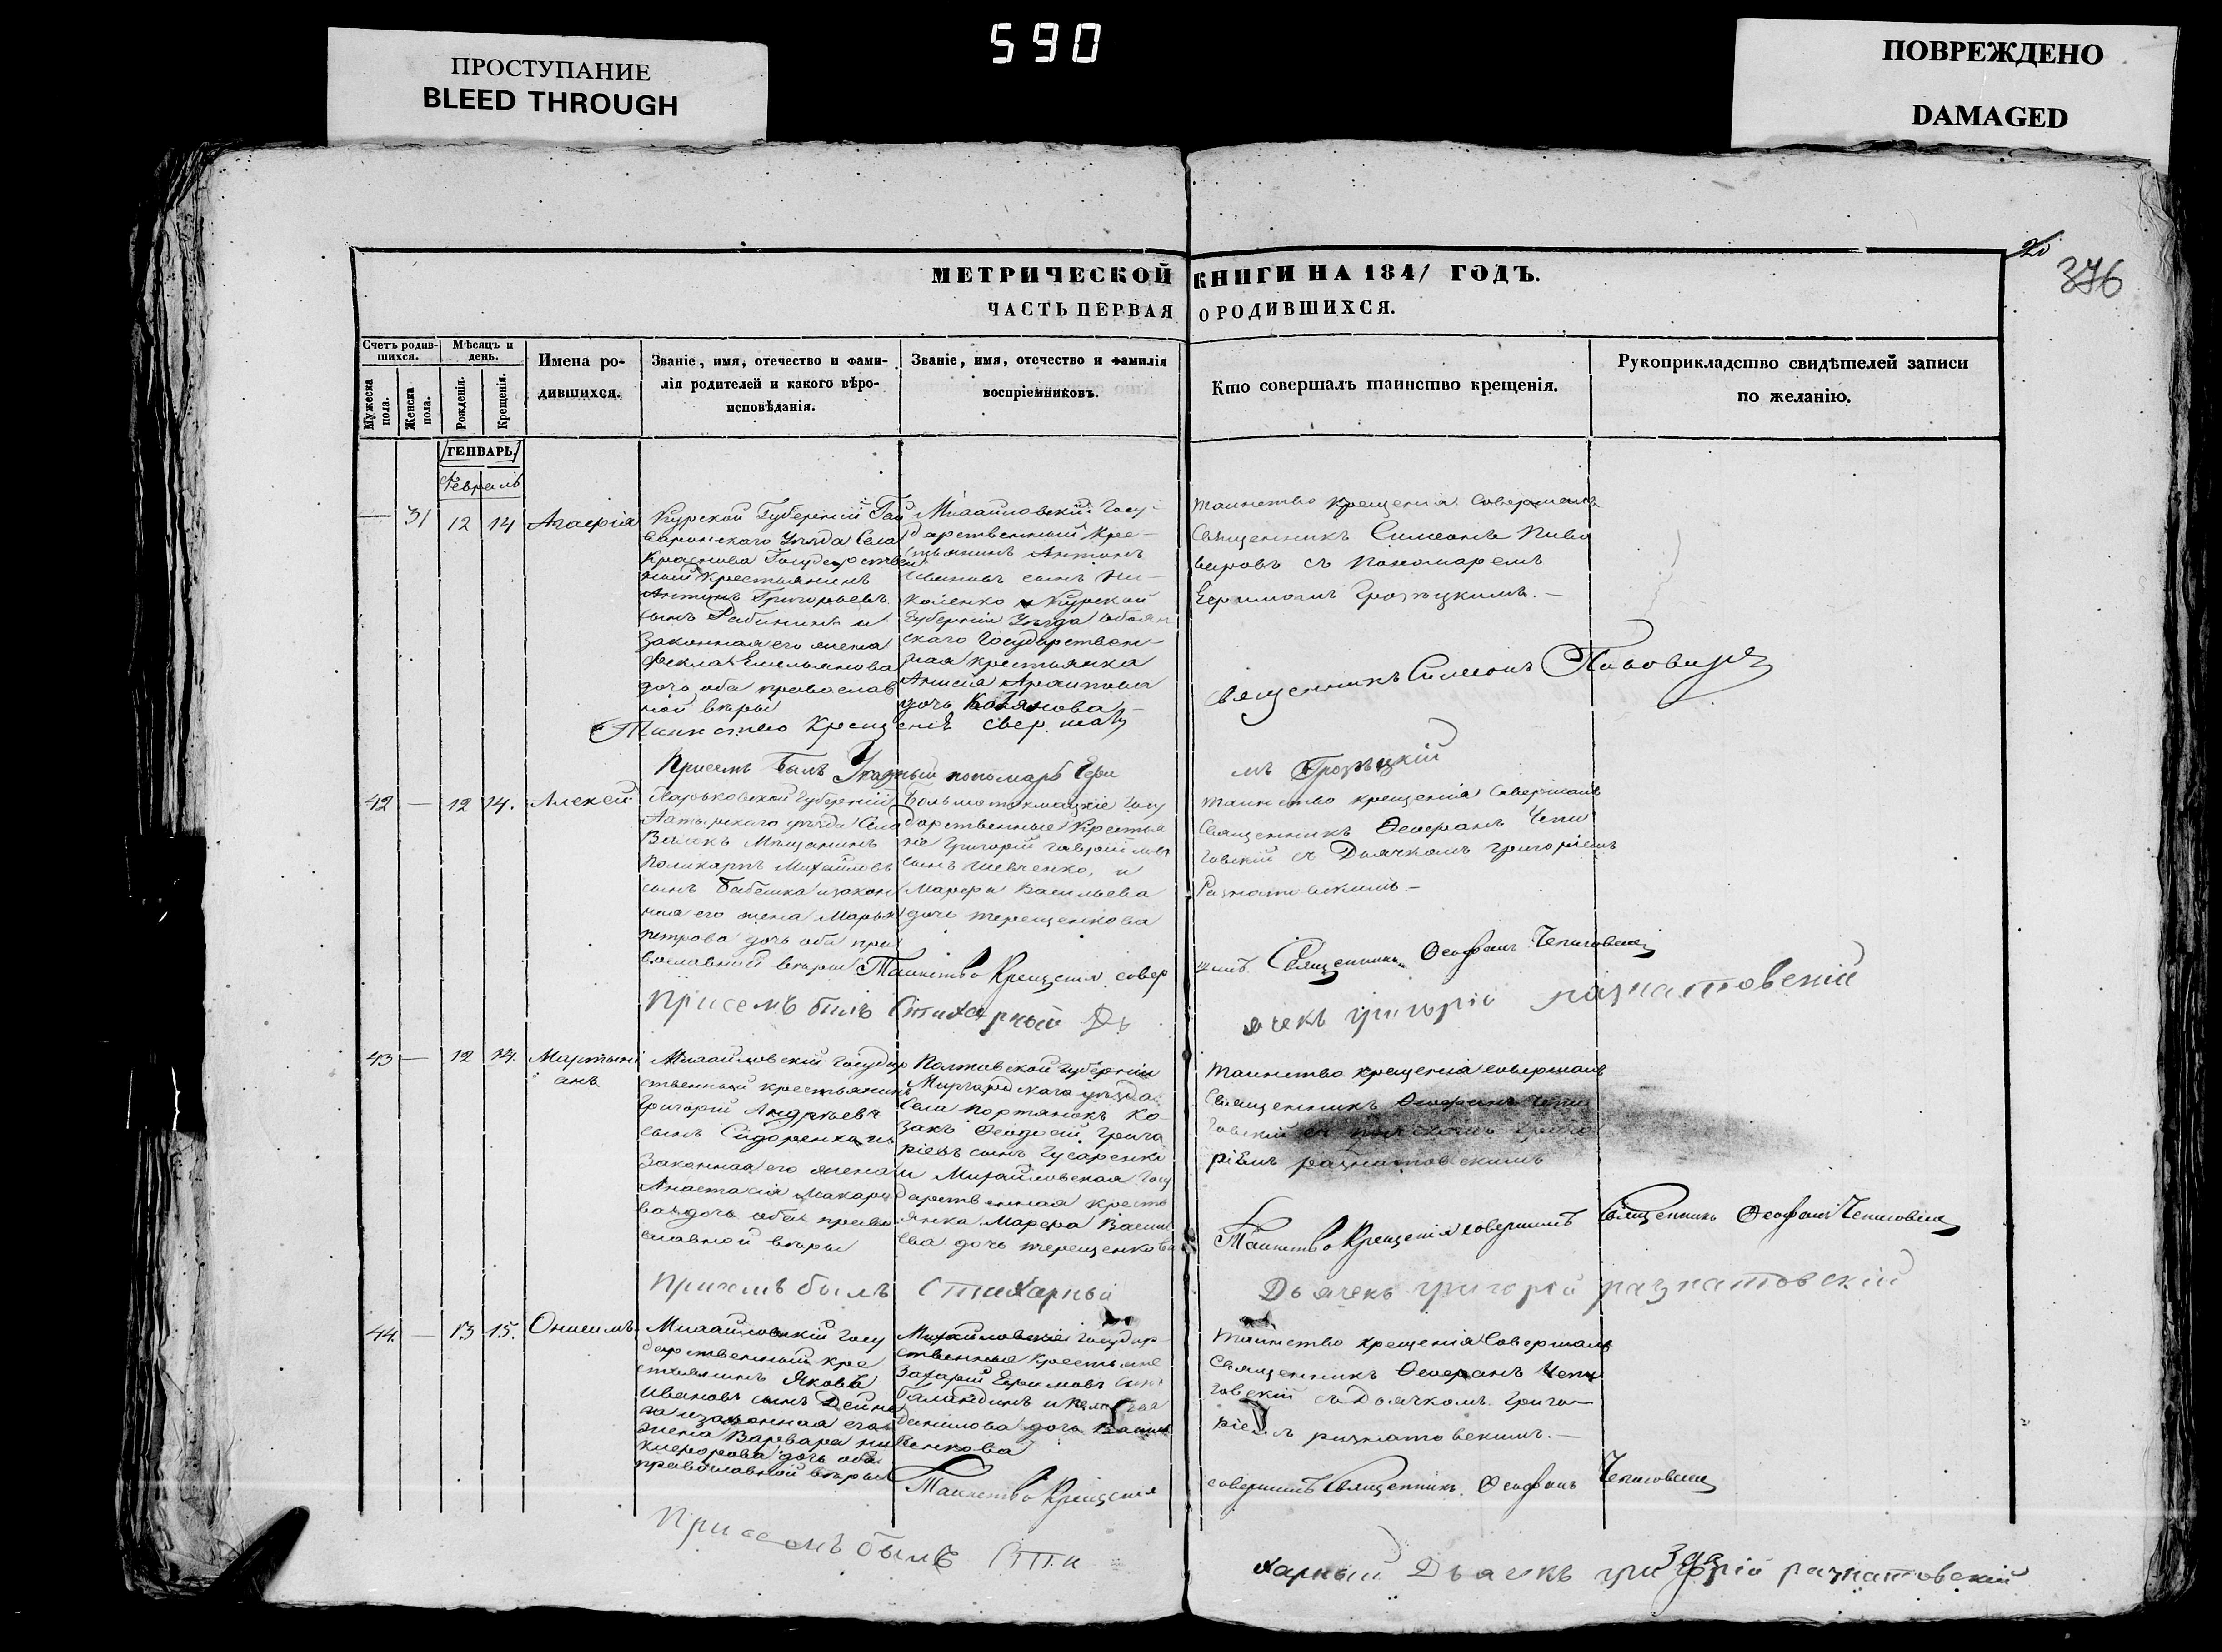 590
ПРОСТУПАНИЕ
BLEED THROUGH
ПОВРЕЖДЕНО
DAMAGED
376
МЕТРИЧЕСКОЙ КНИГИ НА 1841 ГОДЪ.
ЧАСТЬ ПЕРВАЯ О РОДИВШИХСЯ.
Счетъ родив-
шихся.
Мужеска
пола.
Женска
пола.
Мѣсяцъ и
день.
Рожденія.
Крещенія.
Имена ро-
дившихся.
Званіе, имя, отечество и фами-
лія родителей и какого вѣро-
исповѣданія.
Званіе, имя, отечество и фамилія
воспріемниковъ.
Кто совершалъ таинство крещенія.
Рукоприкладство свидѣтелей записи
по желанію.
ГЕНВАРЬ
Февраль
— 31 12 14 Агафія
Курской Губерніи Гай
воронскаго Уѣзда Села
Государствен
ный крестьянинъ
Антонъ Григорьевъ
сынъ и
законная его жена
Фекла Емельянова
дочь оба православ
ной вѣры
Михайловскій Госу-
дарственный Кре-
стьянинъ Антонъ
Ивановъ сынъ Ни-
коленко и Курской
Губерніи Уѣзда Обоян
скаго Государствен-
ная крестьянка
Анисія
дочь
таинство крещенія совершалъ
Священникъ Симеонъ Пиво
варовъ съ Пономаремъ
Священникъ Симеонъ
Таинство Крещенія
При семъ былъ пономарь
42 — 12 14. Алексей
Харьковской Губерніи
уѣзда Села
Мѣщанинъ
Поликарпъ Михайловъ
сынъ и закон
ная его жена Марья
петрова дочь оба пра
вославной вѣры
Большетокмацкіе Госу
дарственные Крестья
не Григорій Гавріиловъ
сынъ Шевченко, и
Марфа Васильева
дочь терещенкова
таинство крещенія совершалъ
Священникъ Ѳеофанъ Чепи
говскій съ Дьячкомъ григоріемъ
Разнатовскимъ.—
Таинство Крещенія совер
шилъ Священникъ Ѳеофанъ Чепиговскій
При семъ былъ Стихарный Дь
ячекъ григорій разнатовскій
43 — 12 14. Мартини
анъ
Михайловскій Государ
ственный крестьянинъ
Григорій Андреевъ
сынъ Сидоренко и
Законная его жена
Анастасія Макаро
ва дочь оба право
славной вѣры
Полтовской Губерніи
Миргородскаго уѣзда
Села портянокъ Ко-
закъ Ѳеодосій Григо
ріевъ сынъ Гусаренко
и Михайловская Госу
дарственная кресть
янка Марфа Василь
ева дочь терещенкова
таинство крещенія совершалъ
Священникъ Ѳеофанъ Чепи
говскій съ дьячкомъ Григо
ріемъ разнатовскимъ
Таинство Крещенія совершилъ Священникъ Ѳеофанъ Чепиговскій
При семъ былъ Стихарный Дьячекъ григорій разнатовскій
44. — 13 15. Онисимъ
Михайловскій Госу
дарственный кре
стьянинъ Яковъ
Ивановъ сынъ Дейне
ка и законная его
жена Варвара ни
кифорова дочь оба
православной вѣры
Михайловскіе Государ
ственные Крестьяне
Захарій Ефимовъ сынъ
Баландинъ и
данилова дочь
таинство крещенія совершалъ
Священникъ Ѳеофанъ Чепи
говскій съ Дьячкомъ Григо-
ріемъ разнатовскимъ.—
Таинство Крещенія
совершилъ Священникъ Ѳеофанъ Чепиговскій
При семъ былъ Сти
харный Дьячекъ григорій разнатовскій